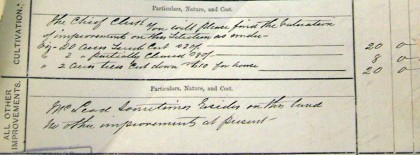 Particulars, Nature, and Cost.
The Chief Clerk You will please find the Valuation
of improvements on this Selection as under
20 acres Cut 20 0
2 " partially Cleared 8 0
" 2 acres trees Cut down for house 20 0
CULTIVATION.
Particulars, Nature, and Cost.
Mr Leod Sometimes Resides on this land
No other improvements at present
ALL OTHER
IMPROVEMENTS.